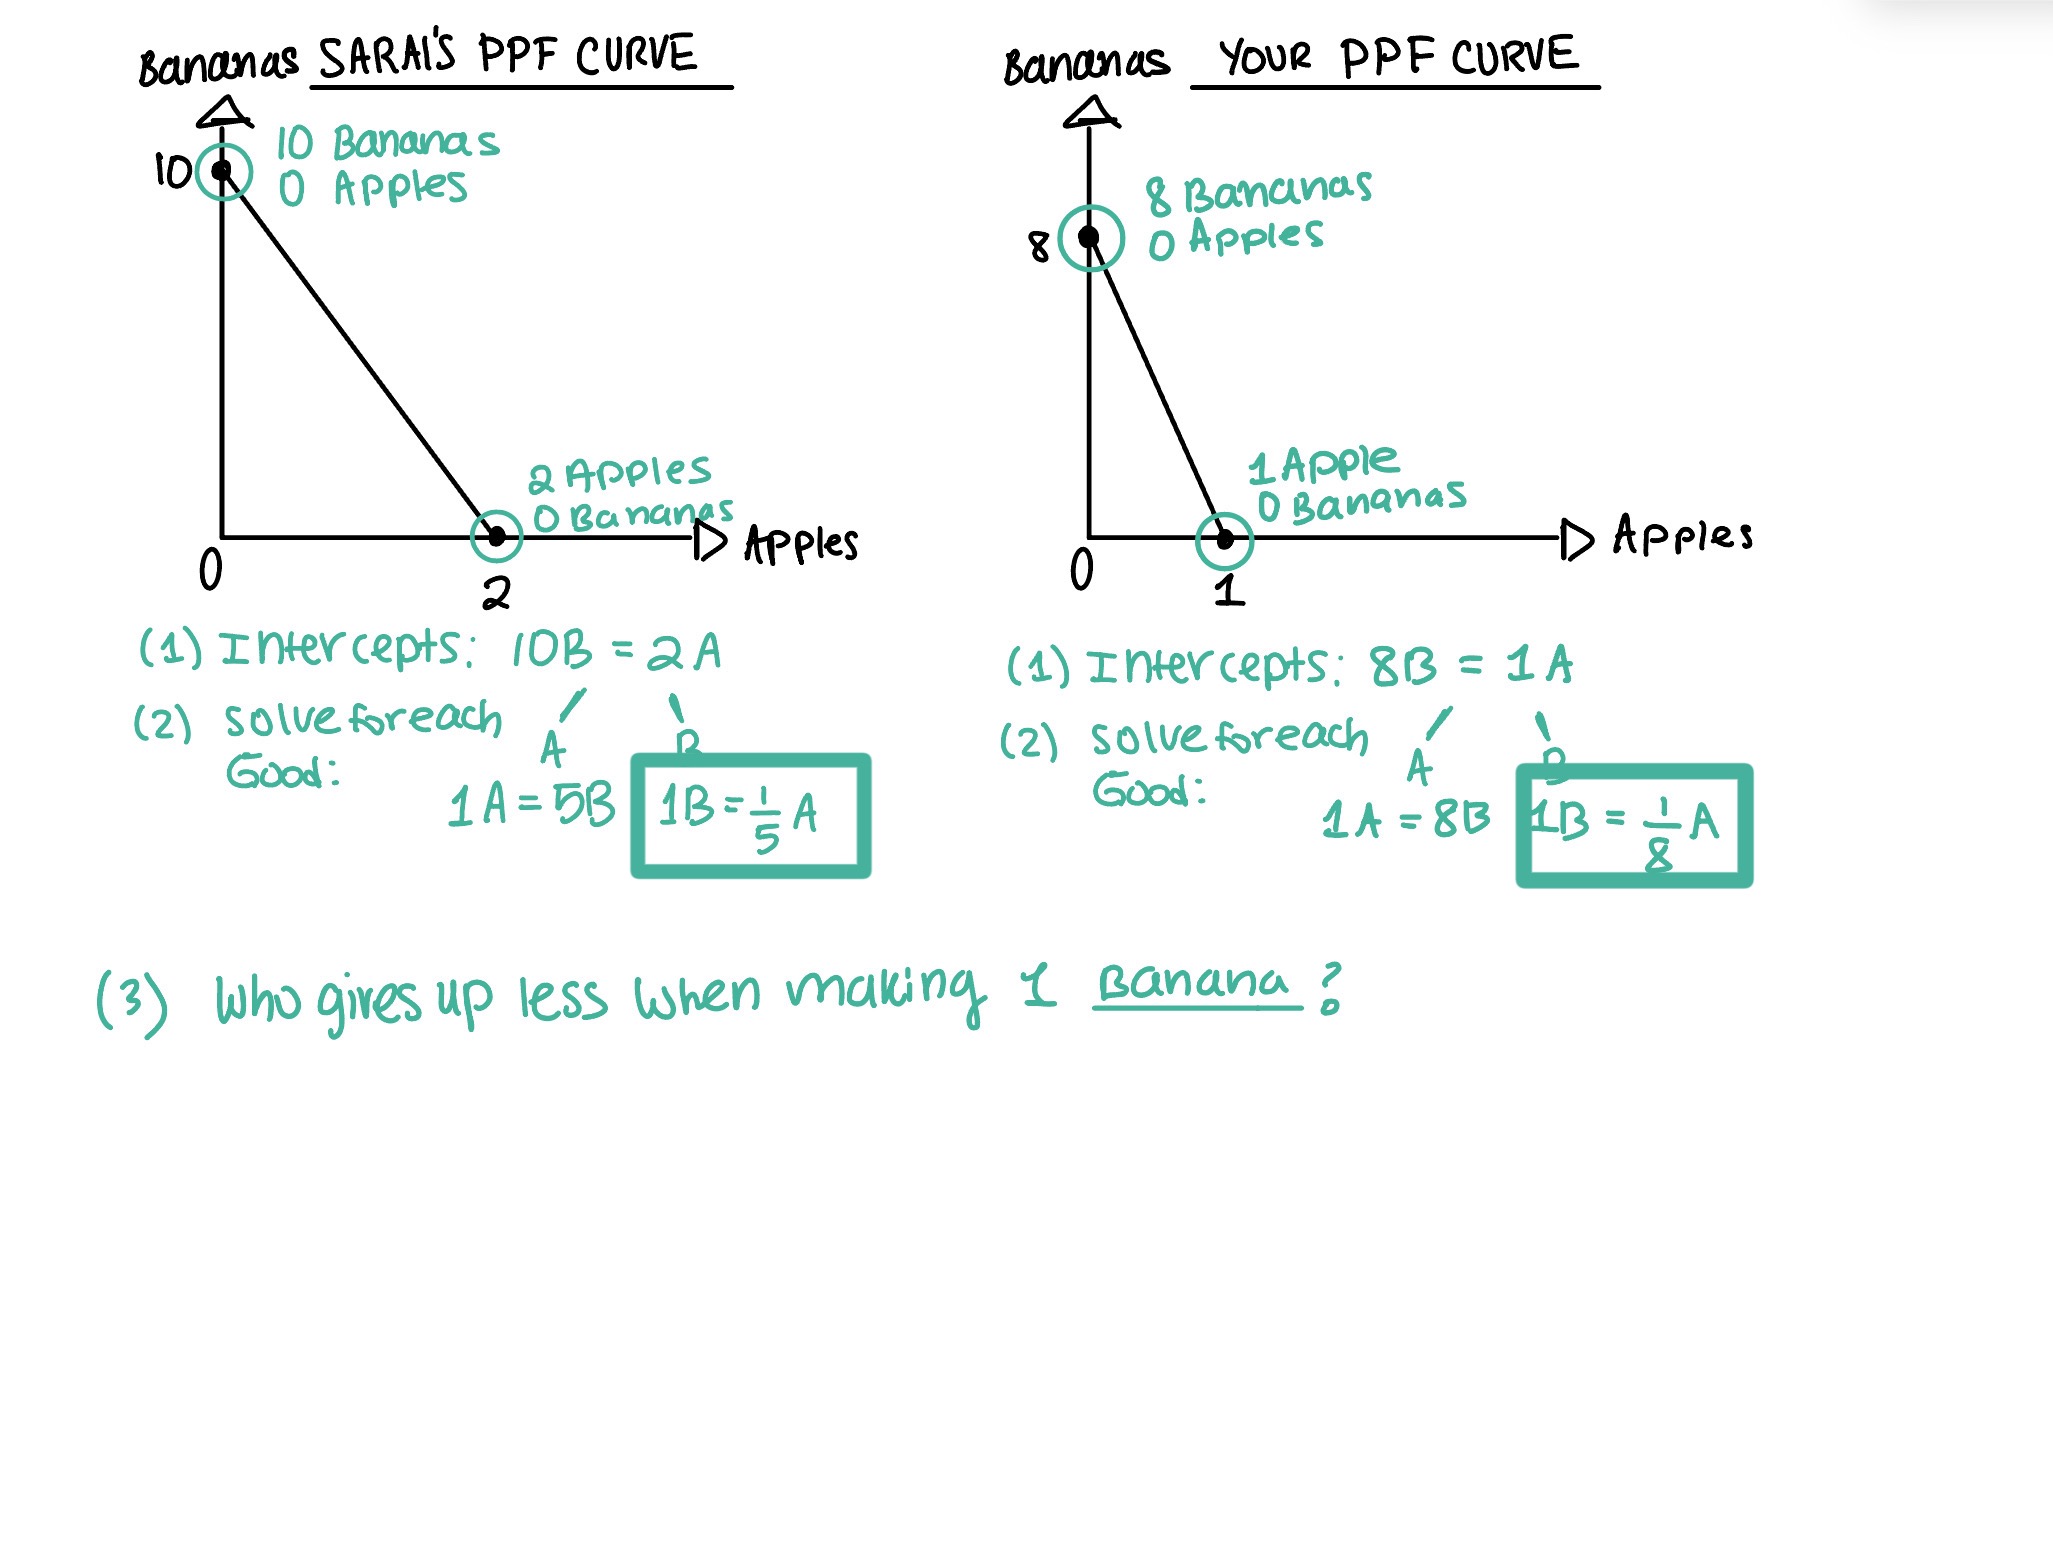 Bananas SARAI'S PPF CURVE
10 Bananas
0 Apples
10
2 Apples
0 Bananas
Apples
0
2
(1) Intercepts: 10B = 2A
(2) solve for each
Good:
A
B
1A = 5B
1B = 1/5 A
Bananas YOUR PPF CURVE
8 Bananas
0 Apples
8
1 Apple
0 Bananas
Apples
0
1
(1) Intercepts: 8B = 1A
(2) solve for each
Good:
A
B
1A = 8B
1B = 1/8 A
(3) Who gives up less when making 1 Banana?